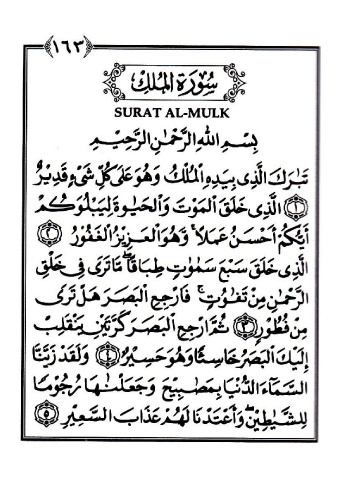 ١٦٣
سُورَةُ الْمُلْكِ
SURAT AL-MULK
بِسْمِ اللهِ الرَّحْمٰنِ الرَّحِيْمِ
تَبَارَكَ الَّذِي بِيَدِهِ الْمُلْكُ وَهُوَ عَلَى كُلِّ شَيْءٍ قَدِيْرٌ
﴿١﴾ الَّذِي خَلَقَ الْمَوْتَ وَالْحَيٰوةَ لِيَبْلُوَكُمْ
أَيُّكُمْ أَحْسَنُ عَمَلًا ۚ وَهُوَ الْعَزِيْزُ الْغَفُوْرُ ﴿٢﴾
الَّذِي خَلَقَ سَبْعَ سَمٰوٰتٍ طِبَاقًا ۖ مَا تَرٰى فِي خَلْقِ
الرَّحْمٰنِ مِنْ تَفٰوُتٍ ۚ فَارْجِعِ الْبَصَرَ هَلْ تَرٰى
مِنْ فُطُوْرٍ ﴿٣﴾ ثُمَّ ارْجِعِ الْبَصَرَ كَرَّتَيْنِ يَنْقَلِبْ
إِلَيْكَ الْبَصَرُ خَاسِئًا وَهُوَ حَسِيْرٌ ﴿٤﴾ وَلَقَدْ زَيَّنَّا
السَّمَآءَ الدُّنْيَا بِمَصَابِيْحَ وَجَعَلْنٰهَا رُجُوْمًا
لِلشَّيٰطِيْنِ ۖ وَأَعْتَدْنَا لَهُمْ عَذَابَ السَّعِيْرِ ﴿٥﴾